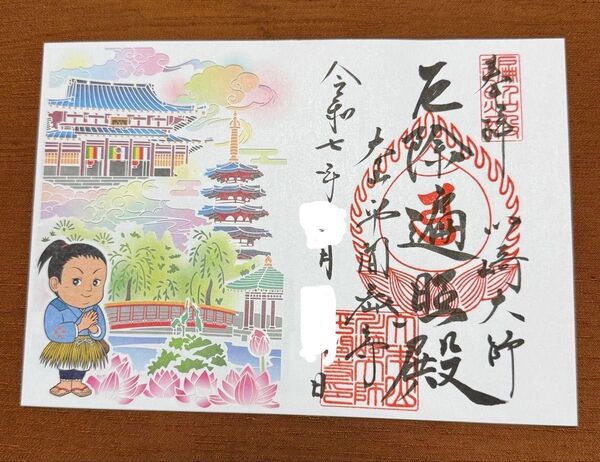 奉拝
川崎大師
厄除遍照殿
大本山平間寺
令和七年 月 日